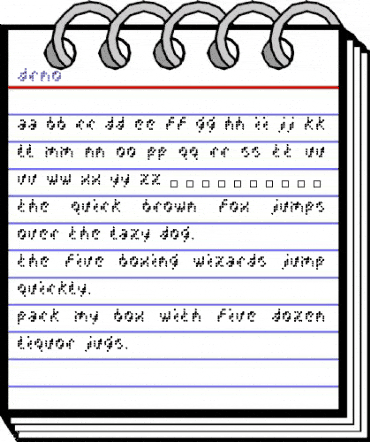 drno
aa bb cc dd ee ff gg hh ii jj kk
ll mm nn oo pp qq rr ss tt uu
vv ww xx yy zz □ □ □ □ □ □ □ □ □ □
the quick brown fox jumps
over the lazy dog.
the five boxing wizards jump
quickly.
pack my box with five dozen
liquor jugs.